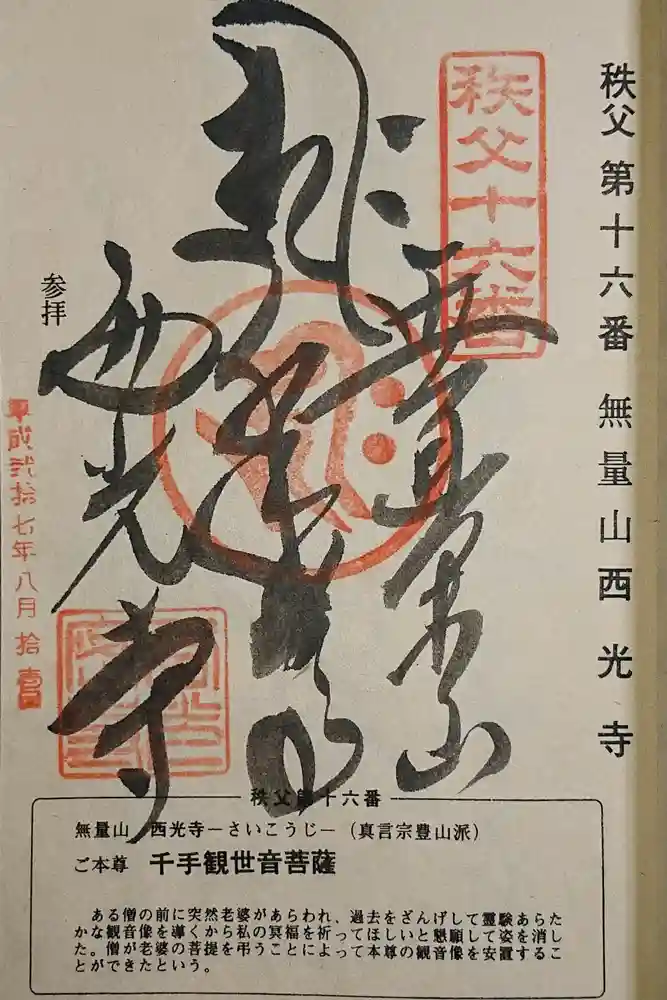 秩父 第十六番 無量山 西光寺
秩父十六番
無量山
西光寺
参拝
平成弐拾七年八月拾壹日
秩父第十六番
無量山 西光寺ーさいこうじー(真言宗豊山派)
ご本尊 千手観世音菩薩
ある僧の前に突然老婆があらわれ、過去をざんげして霊験あらた
かな観音像を導くから私の冥福を祈ってほしいと懇願して姿を消し
た。僧が老婆の菩提を弔うことによって本尊の観音像を安置するこ
とができたという。